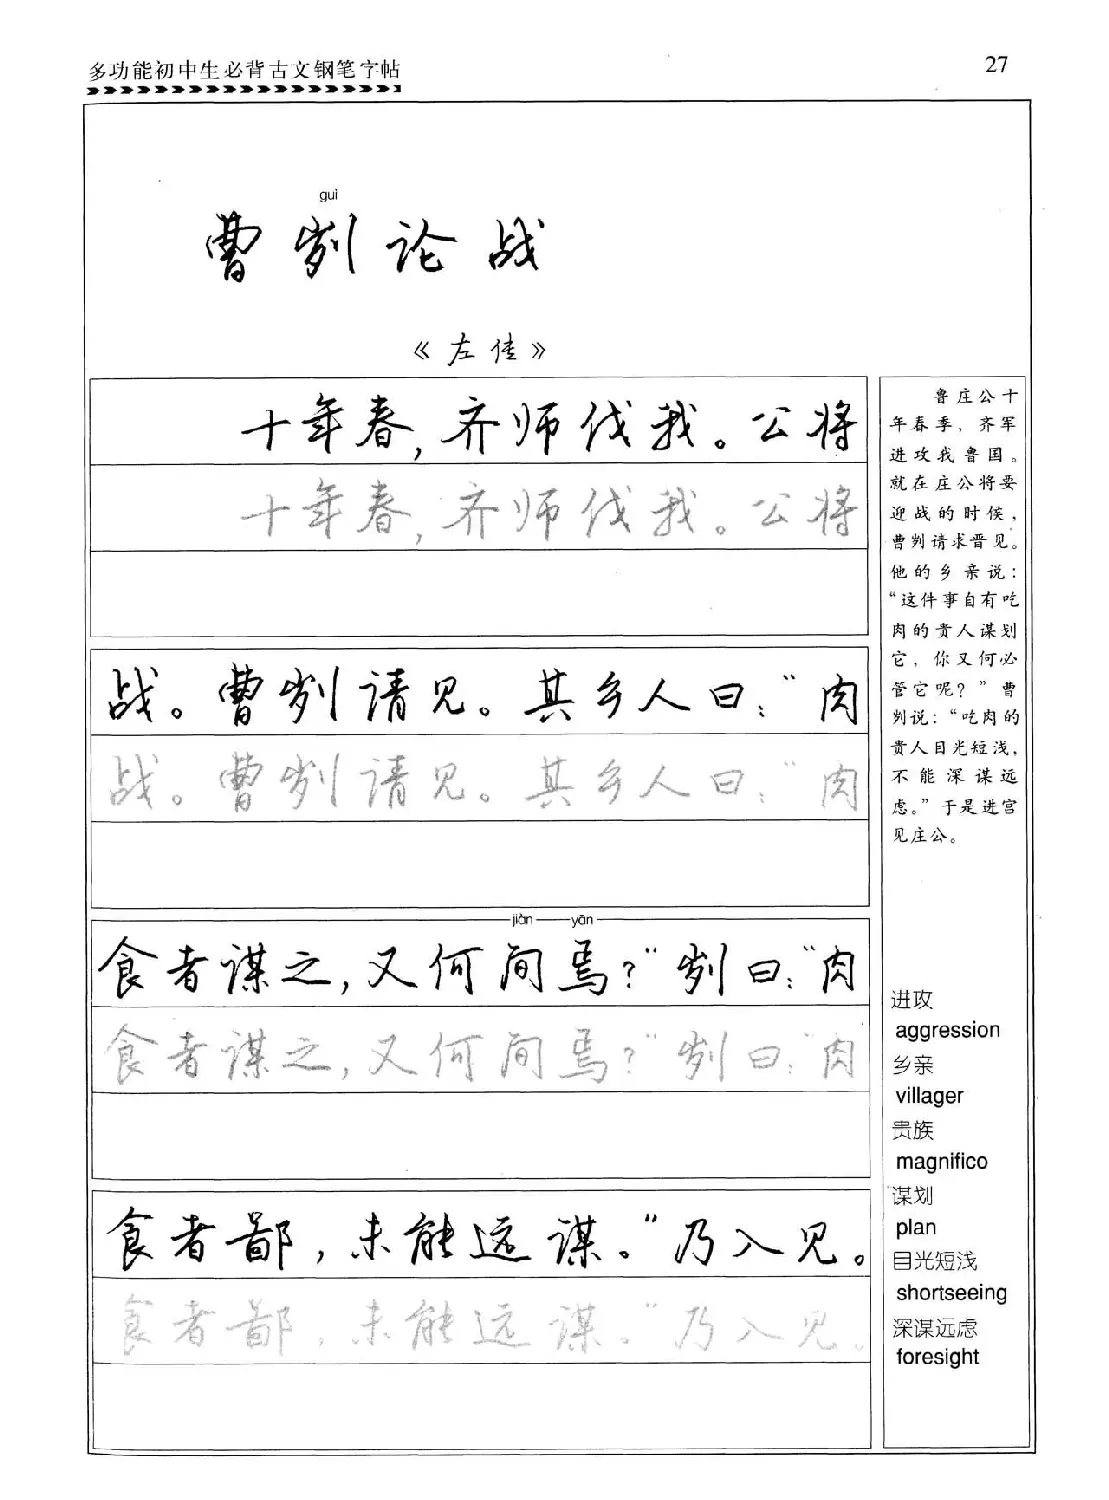 多功能初中生必背古文钢笔字帖
27
guì
曹刿论战
《左传》
十年春，齐师伐我。公将
十年春，齐师伐我。公将
战。曹刿请见。其乡人曰：“肉
战。曹刿请见。其乡人曰：“肉
jiàn yān
食者谋之，又何间焉？”刿曰：“肉
食者谋之，又何间焉？”刿曰：“肉
食者鄙，未能远谋。”乃入见。
食者鄙，未能远谋。”乃入见。
鲁庄公十
年春季，齐军
进攻我鲁国。
就在庄公将要
迎战的时侯，
曹刿请求晋见。
他的乡亲说：
“这件事自有吃
肉的贵人谋划
它，你又何必
管它呢？”曹
刿说：“吃肉的
贵人目光短浅，
不能深谋远
虑。”于是进宫
见庄公。
进攻
aggression
乡亲
villager
贵族
magnifico
谋划
plan
目光短浅
shortseeing
深谋远虑
foresight